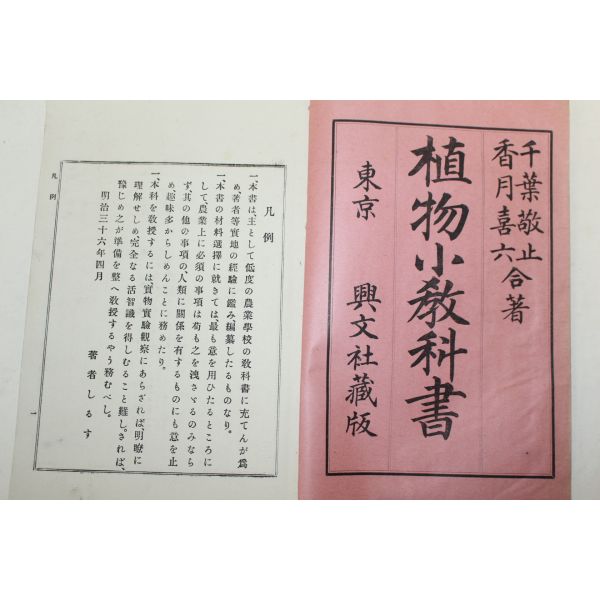 千葉敬止
香月喜六合著
植物小教科書
東京　興文社藏版
凡例
一、本書は、主として低度の農業學校の教科書に充てんが爲
め、著者等實地の經驗に鑑み、編纂したるものなり。
一、本書の材料選擇に就きては、最も意を用ひたるところに
して、農業上に必須の事項は苟も之を洩さゞるのみなら
ず、其の他の事項の、人類に關係を有するものにも意を止
め、趣味多からしめんことに務めたり。
一、本科を教授するには、實物實驗觀察にあらざれば、明瞭に
理解せしめ、完全なる活智識を得しむること難し。されば、
豫じめ之が準備を整へ教授するやう務むべし。
明治三十六年四月
著者しるす
凡例
一